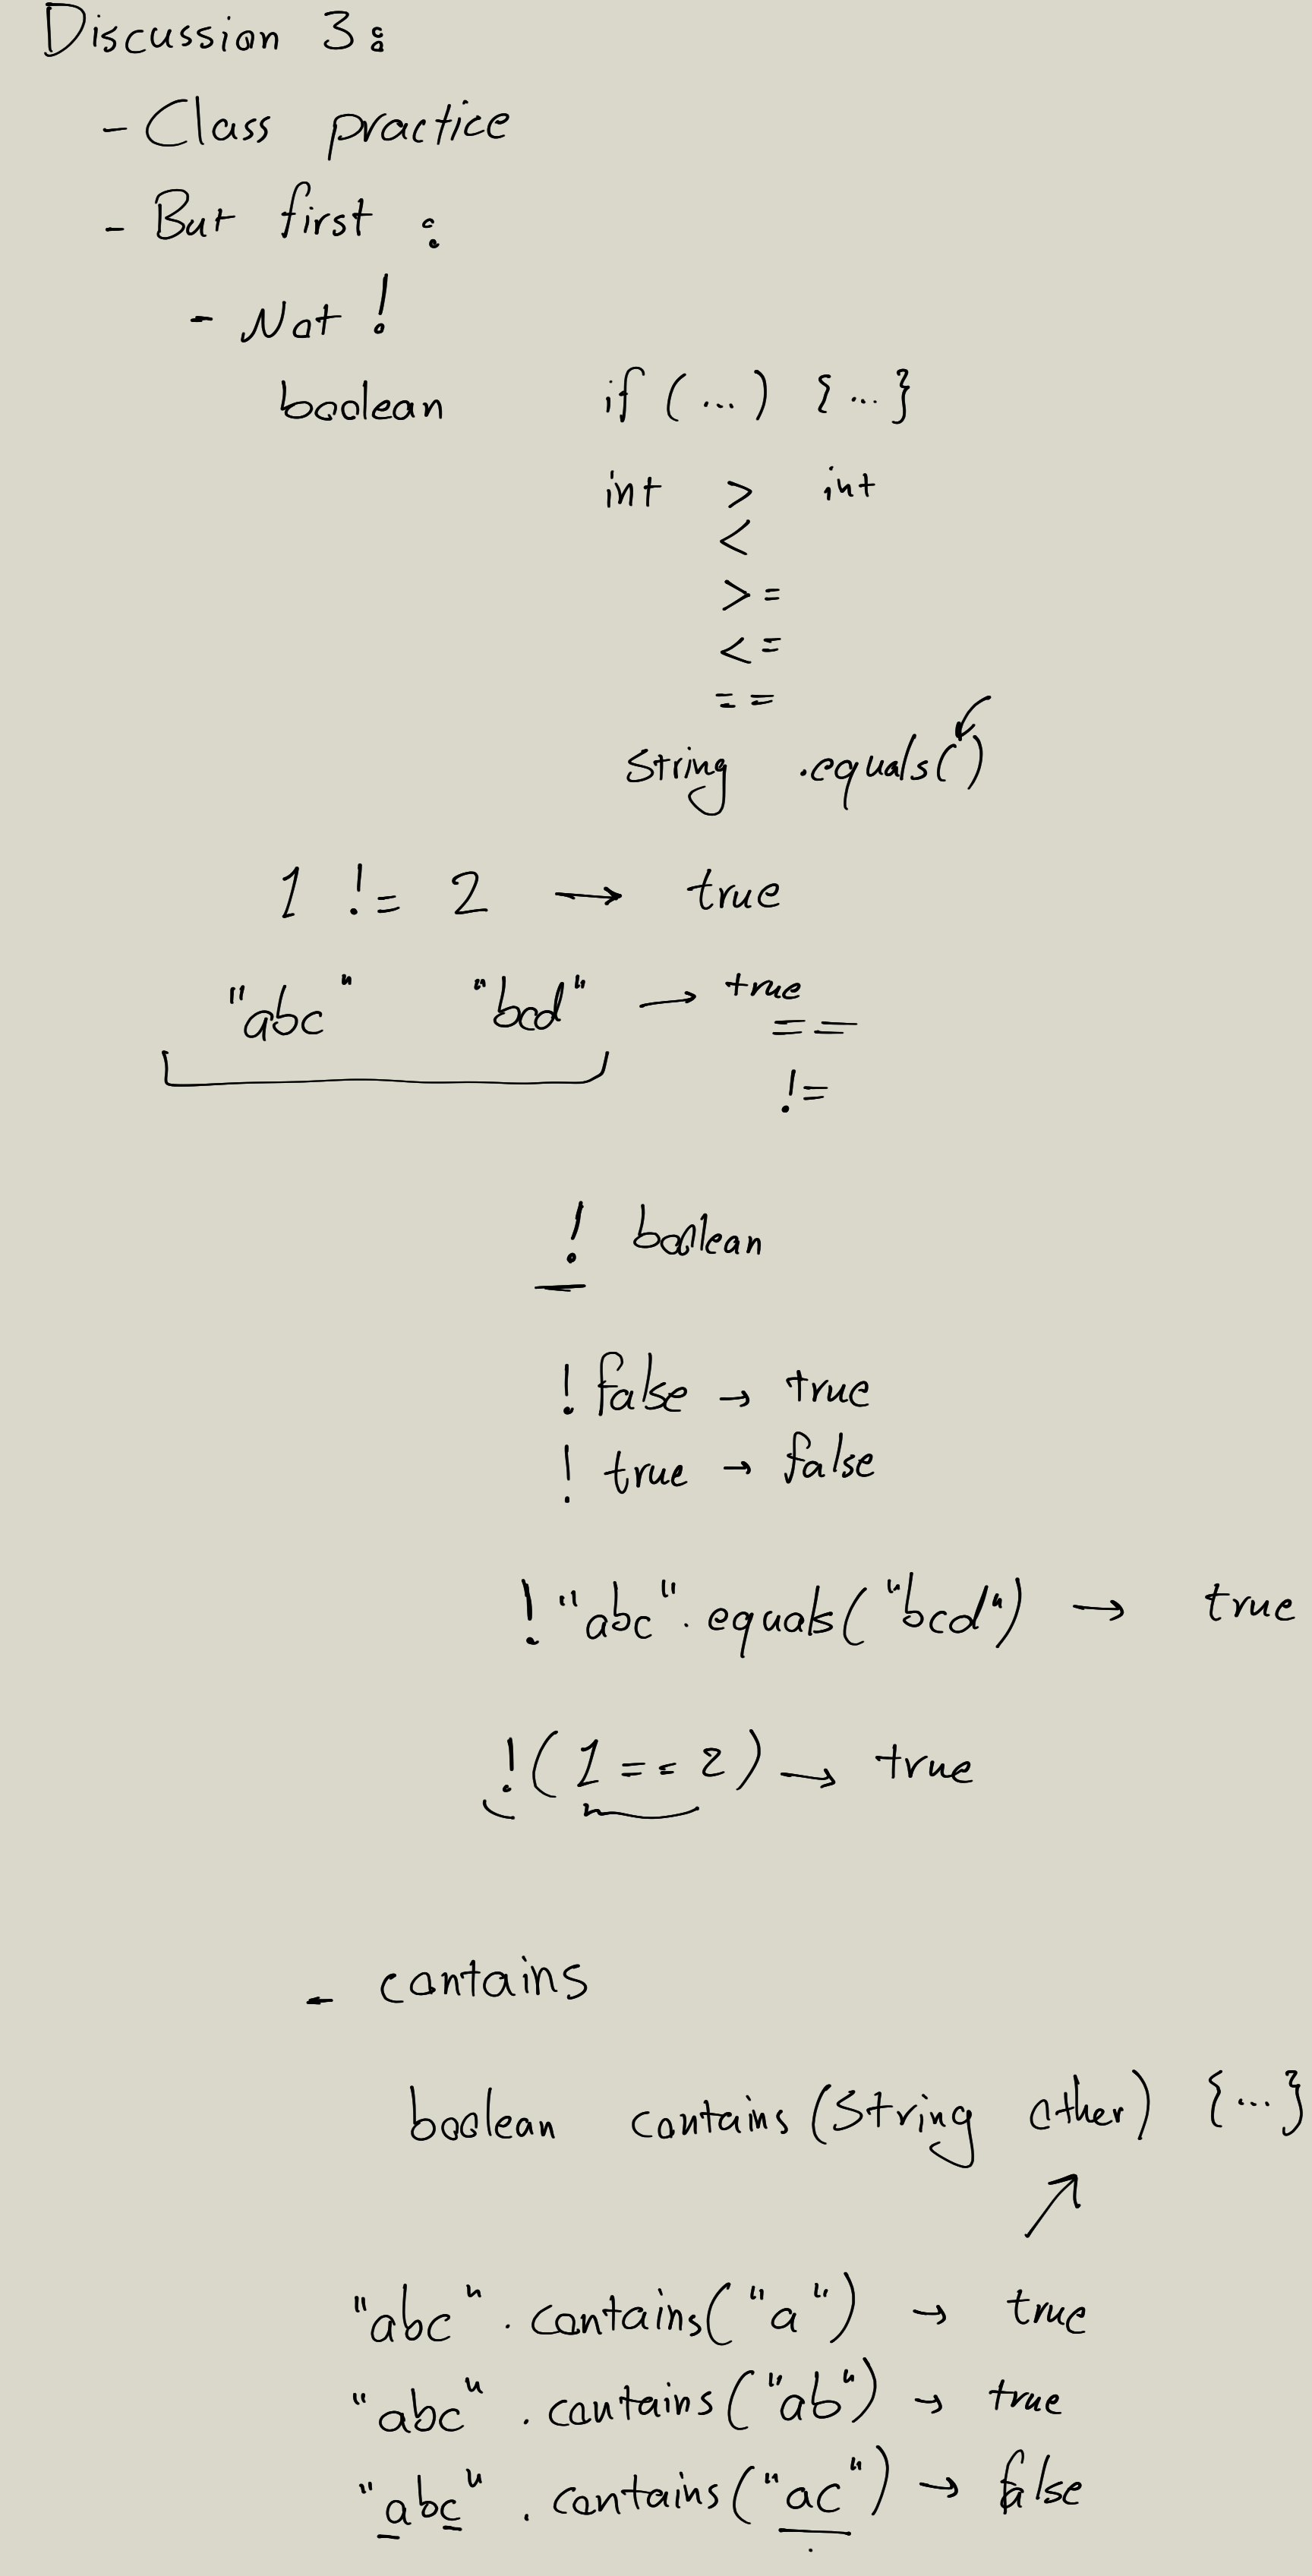 Discussion 3:
- Class practice
- But first :
- Not !
boolean if (...) {...}
int > int
<
>=
<=
==
String .equals()
1 != 2 → true
"abc" "bcd" → true
==
!=
! boolean
! false → true
! true → false
! "abc".equals("bcd") → true
!(1 == 2) → true
- contains
boolean contains(String other) {...}
"abc".contains("a") → true
"abc".contains("ab") → true
"abc".contains("ac") → false